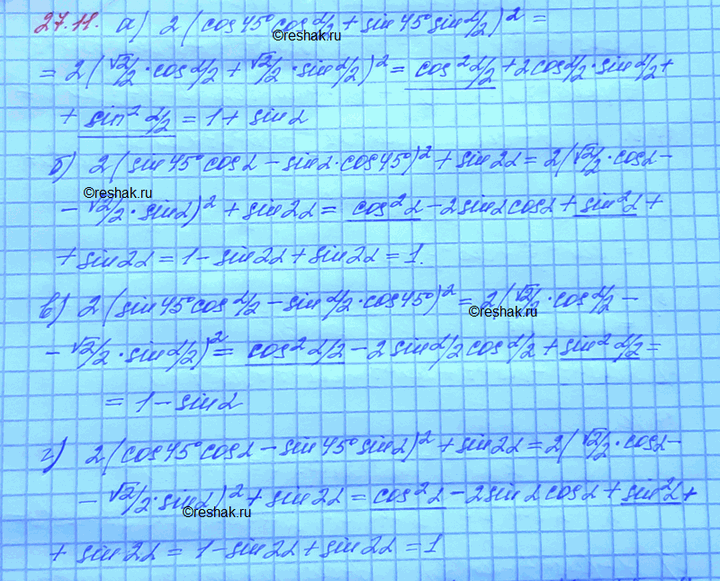 27.11. а) 2(cos45°cosα/2 + sin45°sinα/2)² =
= 2(√2/2·cosα/2 + √2/2·sinα/2)² = cos²α/2 + 2cosα/2·sinα/2 +
+ sin²α/2 = 1 + sinα
б) 2(sin45°cosα - sinα·cos45°)² + sin2α = 2(√2/2·cosα -
- √2/2·sinα)² + sin2α = cos²α - 2sinαcosα + sin²α +
+ sin2α = 1 - sin2α + sin2α = 1.
в) 2(sin45°cosα/2 - sinα/2·cos45°)² = 2(√2/2·cosα/2 -
- √2/2·sinα/2)² = cos²α/2 - 2sinα/2cosα/2 + sin²α/2 =
= 1 - sinα
г) 2(cos45°cosα - sin45°sinα)² + sin2α = 2(√2/2·cosα -
- √2/2·sinα)² + sin2α = cos²α - 2sinαcosα + sin²α +
+ sin2α = 1 - sin2α + sin2α = 1
©reshak.ru
©reshak.ru
©reshak.ru
©reshak.ru